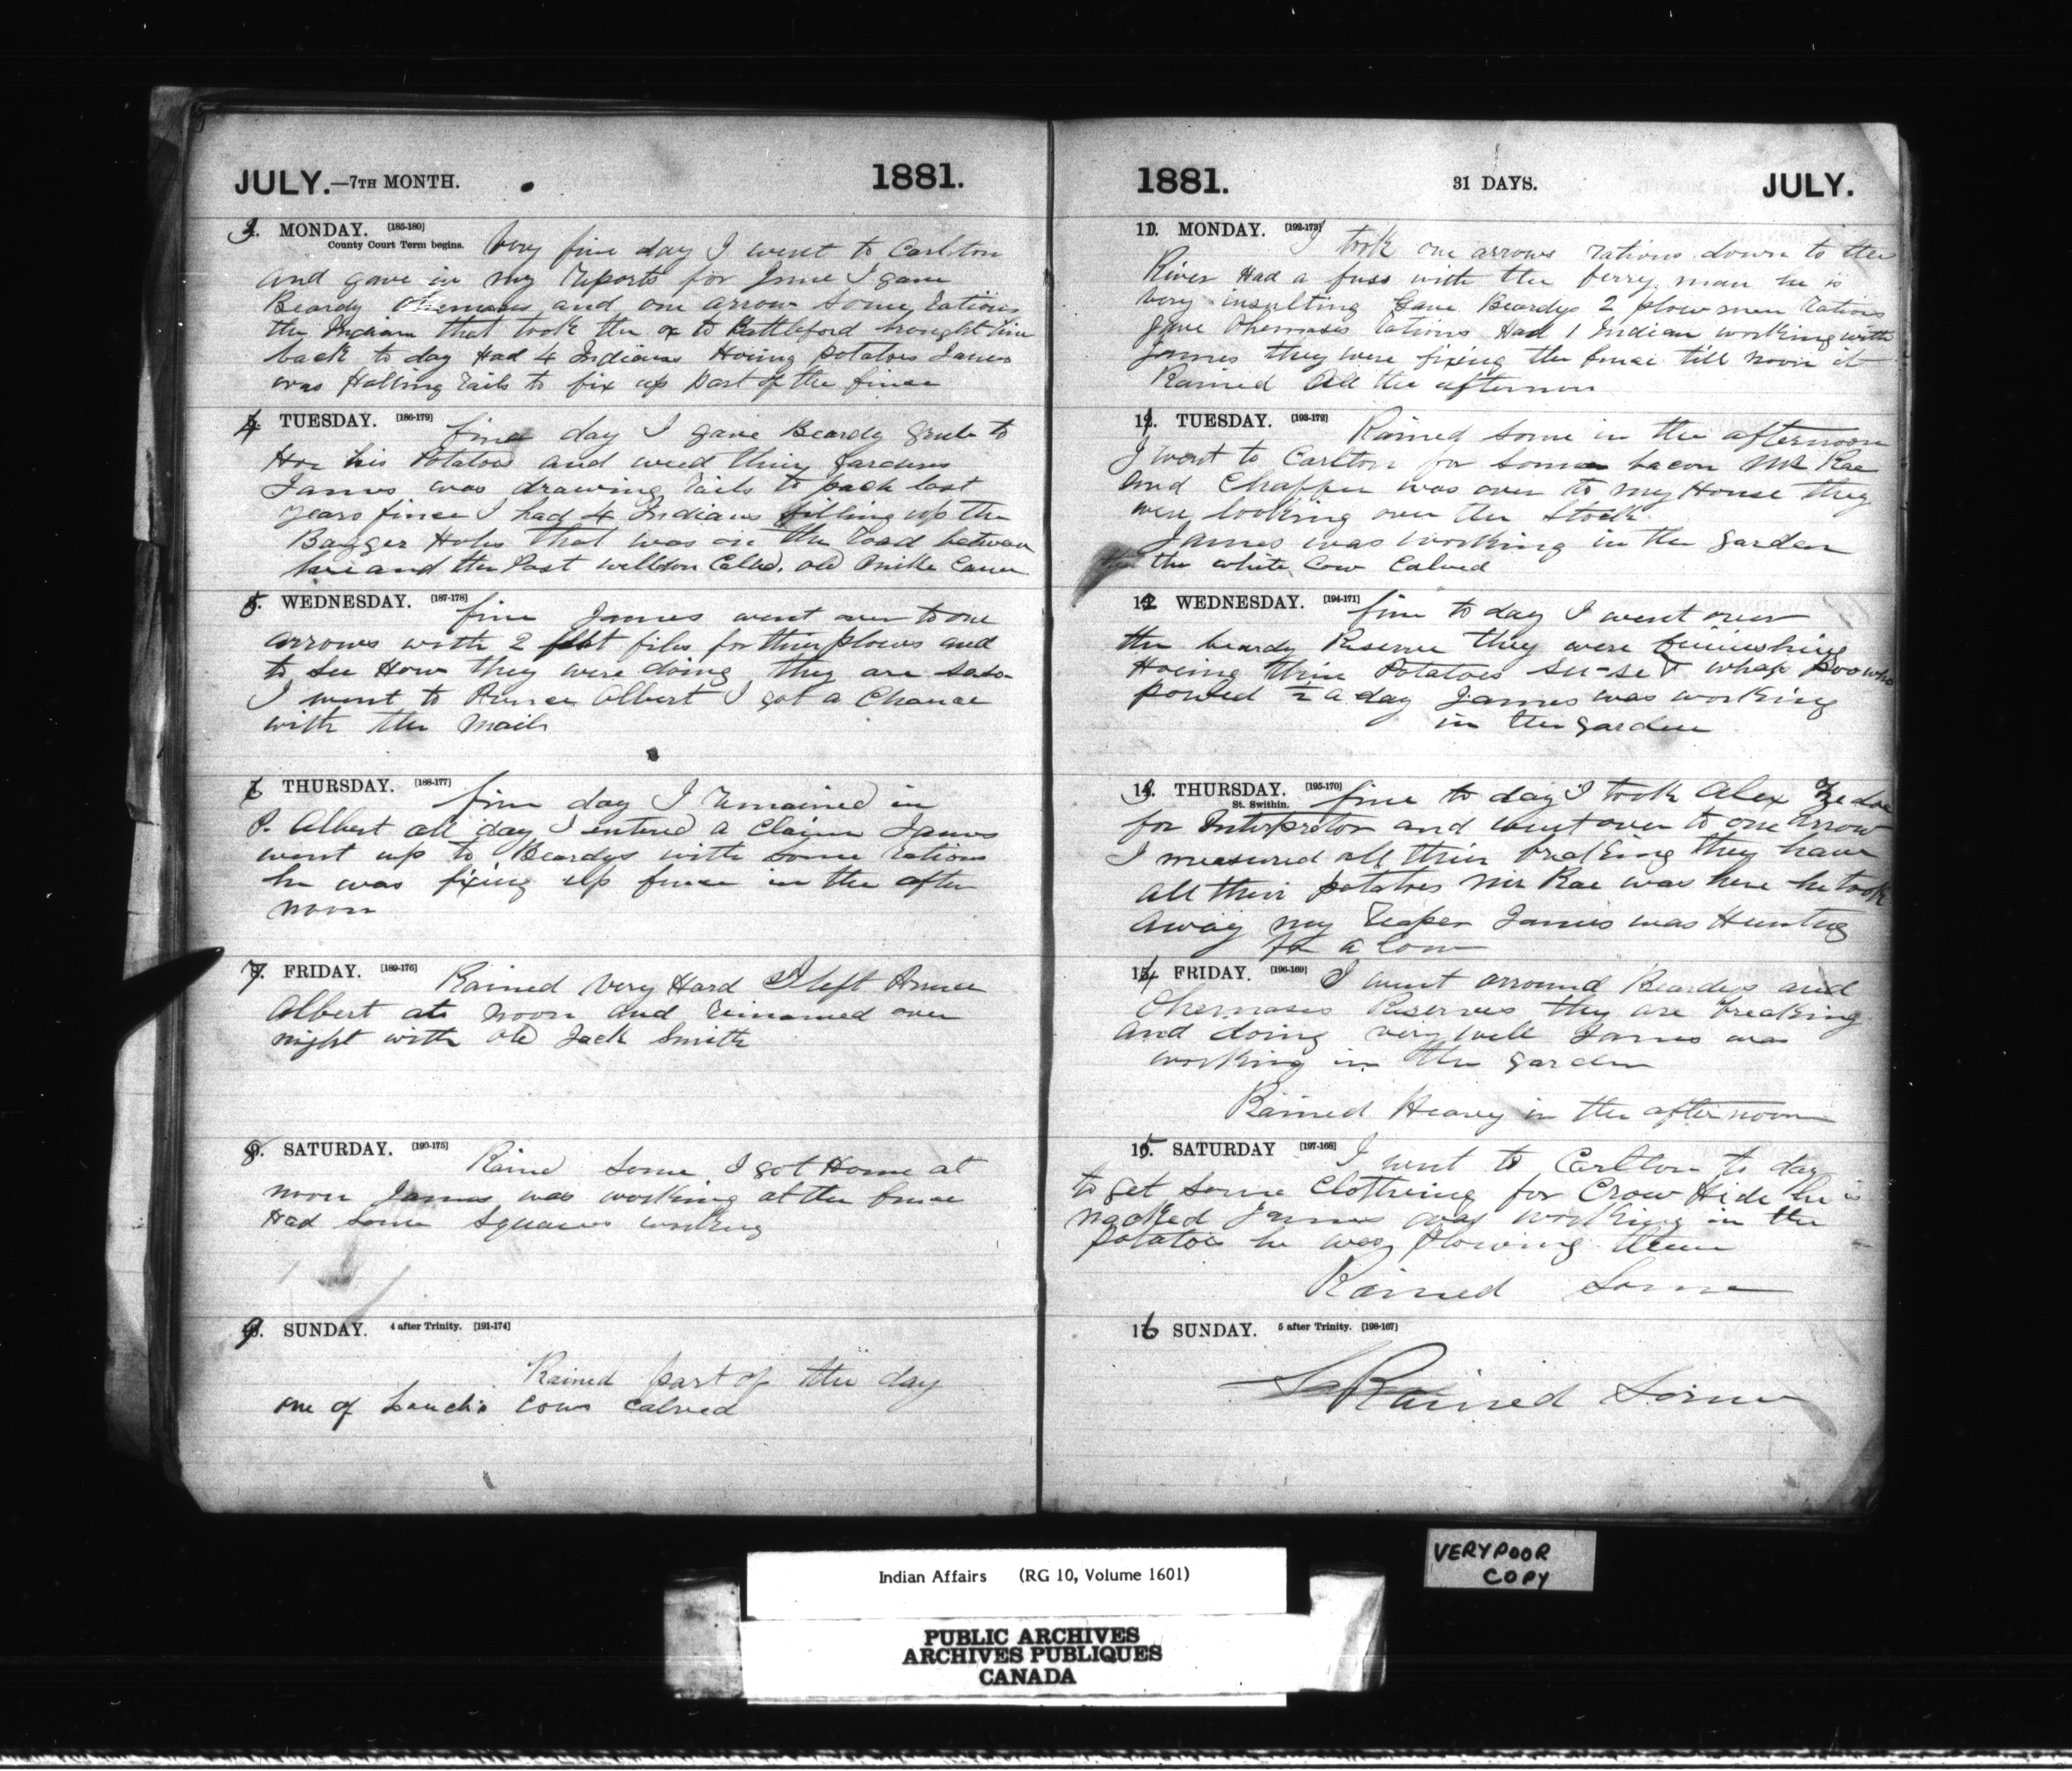 JULY.—7TH MONTH. 1881.
3. MONDAY. [185-180]
County Court Term begins. Very fine day I went to Carlton
and gave in my reports for June I gave
Beardy Chemasis and one arrow some rations
the Indian that took the ox to Battleford brought him
back to day Had 4 Indians Hoing potatoes James
was Halling rails to fix up part of the fince
4 TUESDAY. [186-179] fine day I gave Beardy grub to
Hoe his Potatoes and weed thier gardens
James was drawing rails to last
years fince I had 4 Indians filling up the
Bagger Holes that was on the road between
here and the Post old
5. WEDNESDAY. [187-178] fine James went over to one
arrows with 2 files for thier plows and
to see How they were doing they are
I went to Prince Albert I got a Chance
with the mail
6 THURSDAY. [188-177] fine day I remained in
P. Albert all day I entered a claim James
went up to Beardys with some rations
he was fixing up fence in the after
noon
7. FRIDAY. [189-176] Rained Very Hard I left Prince
Albert at noon and remained over
night with old Jack Smith
8. SATURDAY. [190-175] Raind some I got Home at
noon James was working at the fence
Had some squaws working
9. SUNDAY. 4 after Trinity. [191-174]
Rained part of the day
one of cows calved
1881. 31 DAYS. JULY.
10. MONDAY. [192-173] I took one arrows rations down to the
River Had a fuss with the ferry man he is
very insulting gave Beardys 2 plow men rations
gave Chemasis rations Had 1 Indian working with
James they were fixing the fence till noon it
Rained All the afternoon
12. TUESDAY. [193-172] Rained some in the afternoon
I went to Carlton for some bacon Mr Rae
and was over to my House they
were looking over the stock
James was working in the garden
the white Cow Calved
12 WEDNESDAY. [194-171] fine to day I went over
the beardy Reserve they were
Hoeing thier Potatoes
½ a day James was working
in the garden
THURSDAY. [195-170]
St. Swithin. fine to day I took Alex
for Interpretor and went over to one arrow
I measured all thier breaking they have
all their potatoes Mr Rae was here he took
away my James was Hunting
for a Cow
14 FRIDAY. [196-169] I went arround Beardys and
Chemasis Reserves they are breaking
and doing very well James was
working in the garden
Rained Heavy in the afternoon
15. SATURDAY [197-168] I went to Carlton to day
to get some Clothing for Crow Hide he is
nacked James was working in the
potatoes he was plowing them
Rained Some
16 SUNDAY. 5 after Trinity. [198-167]
Rained Some
VERY POOR
COPY
Indian Affairs (RG 10, Volume 1601)
PUBLIC ARCHIVES
ARCHIVES PUBLIQUES
CANADA